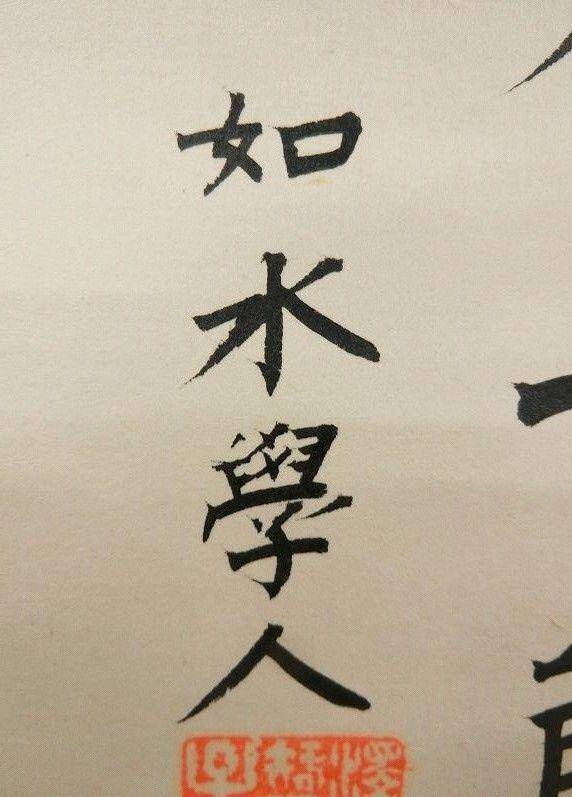 如水學人